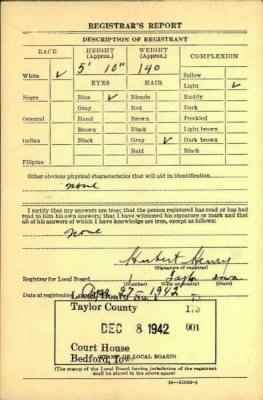 REGISTRAR'S REPORT
DESCRIPTION OF REGISTRANT
RACE HEIGHT (Approx.) WEIGHT (Approx.) COMPLEXION
5' 10" 140 Sallow
White ✓ EYES HAIR Light ✓
Negro Blue ✓ Blonde Ruddy
Gray Red Dark
Oriental Hazel Brown Freckled
Brown Black Light brown
Indian Black Gray ✓ Dark brown
Bald Black
Filipino
Other obvious physical characteristics that will aid in identification
none
I certify that my answers are true; that the person registered has read or has had
read to him his own answers; that I have witnessed his signature or mark and that
all of his answers of which I have knowledge are true, except as follows:
none
Hubert Henry
(Signature of registrar)
Registrar for Local Board 1 Iowa
(Number) (City or county) (State)
Date of registration 27 1942
Local Board No. 1 73
Taylor County 173
DEC 8 1942 001
Court House
Bedford, Iowa
(STAMP OF LOCAL BOARD)
(The stamp of the Local Board having jurisdiction of the registrant
shall be placed in the above space)